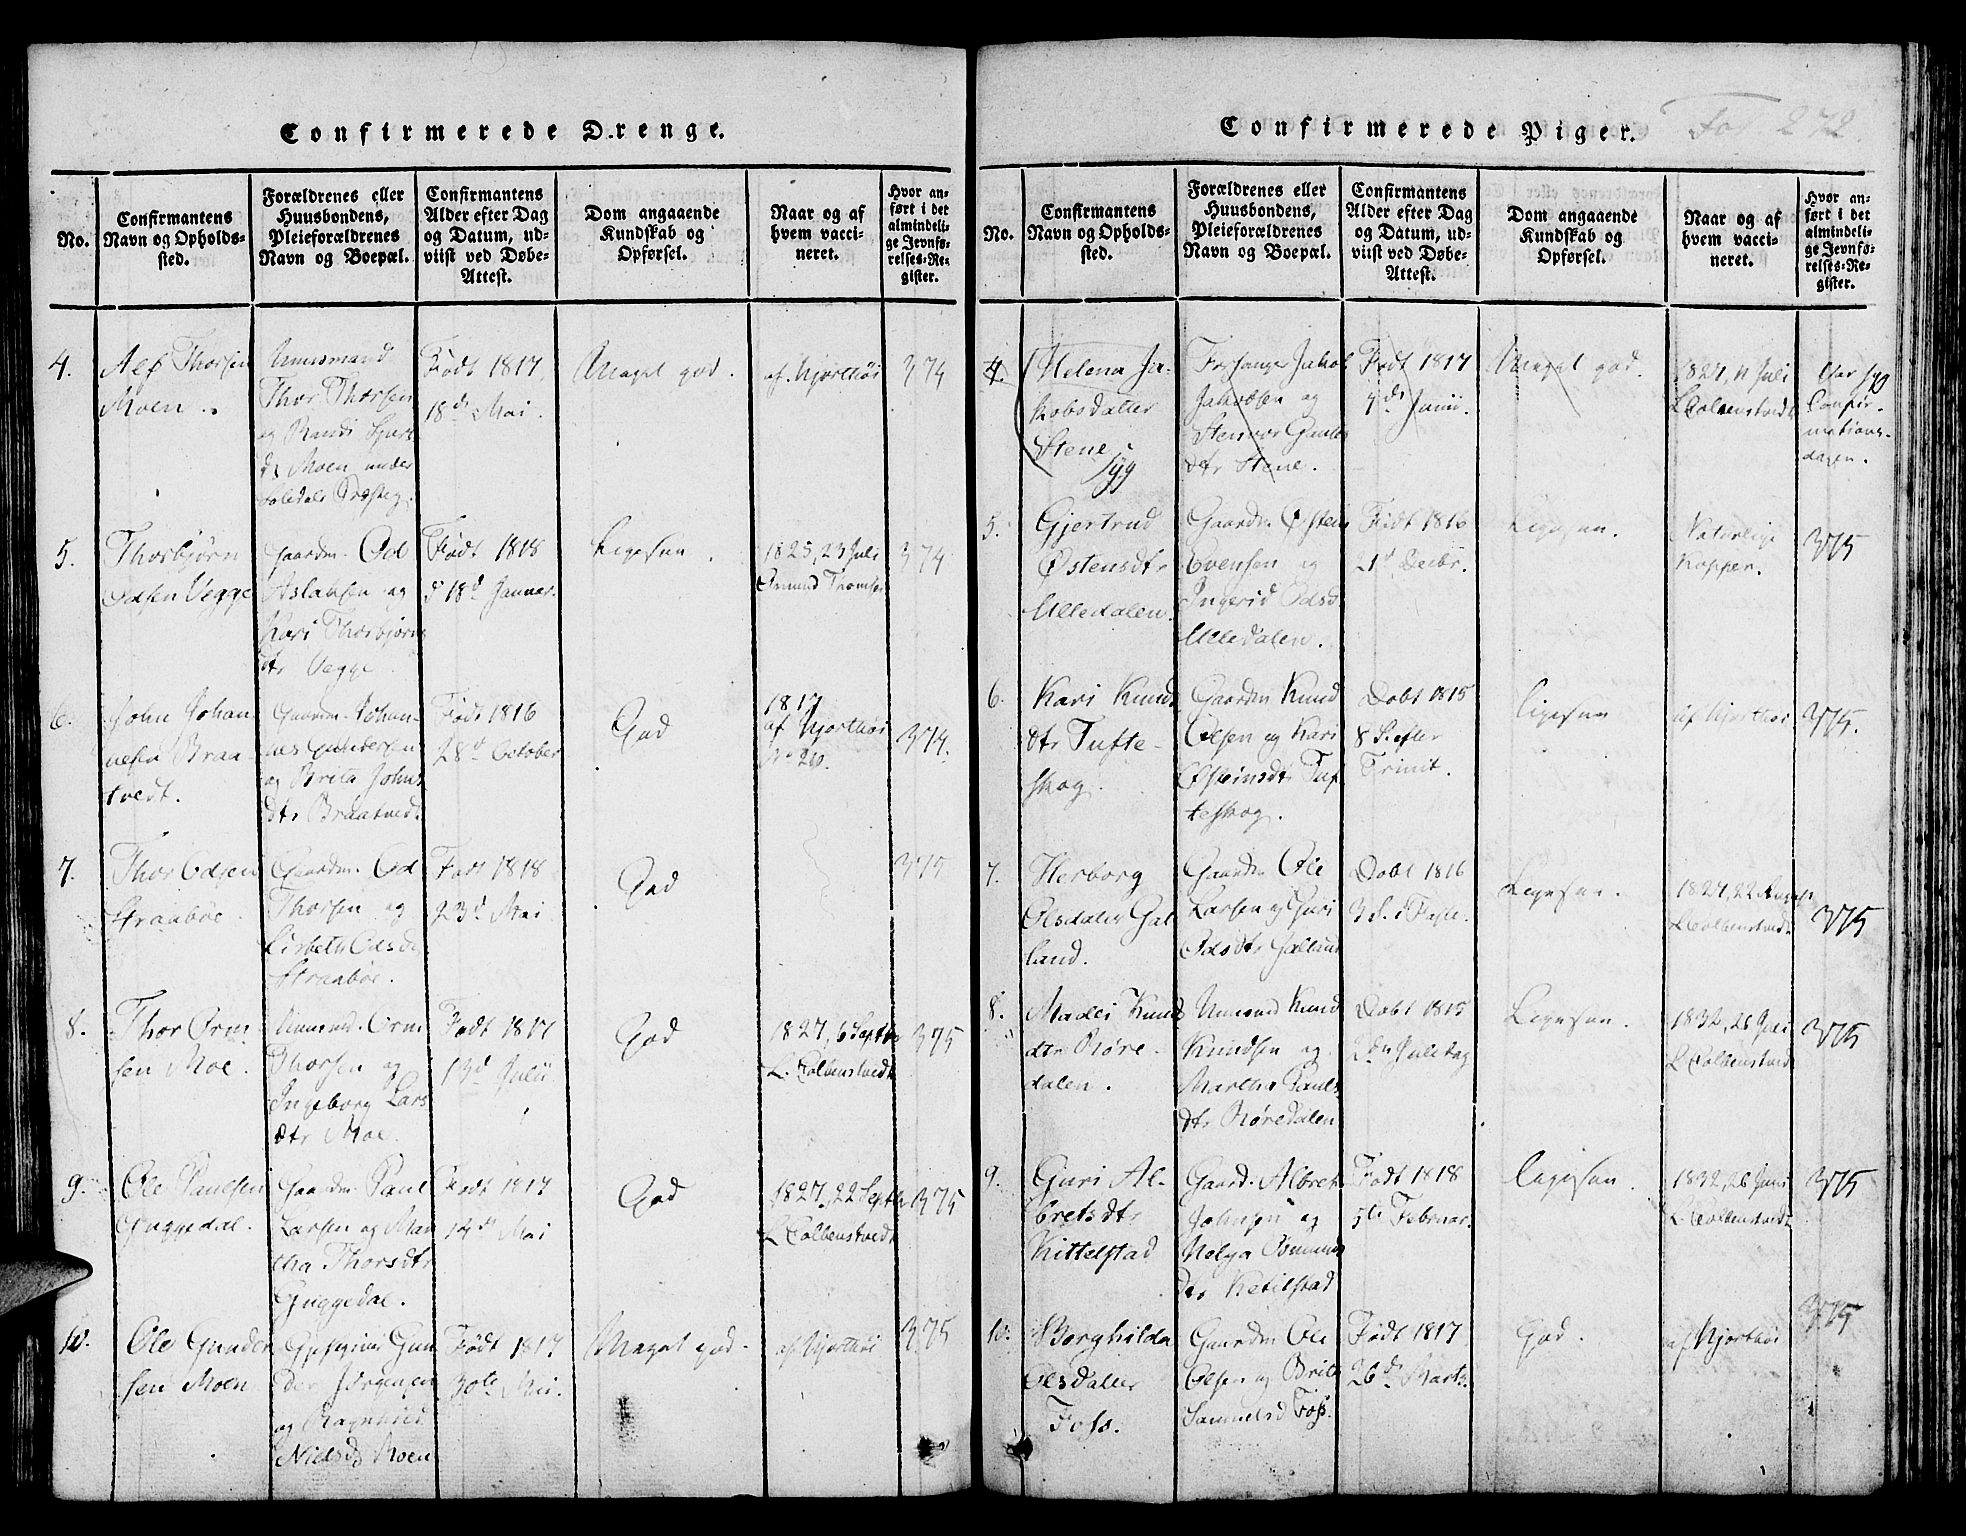 Confirmerede Drenge.
No.
Confirmantens
Navn og Opholds-
sted.
Forældrenes eller
Huusbondens,
Pleieforældrenes
Navn og Boepæl.
Confirmantens
Alder efter Dag
og Datum, ud-
viist ved Døbe-
Attest.
Dom angaaende
Kundskab og
Opførsel.
Naar og af
hvem vacci-
neret.
Hvor an-
ført i det
almindeli-
ge Jevnfø-
relses-Re-
gister.
4.
Alf Thorsen
Moen.
Huusmand
Thor Thorsen
og Randi
Moen under
Født 1817
18de Mai.
Meget god.
af Hjorthøi
374
5.
Thorbjørn
Odsen Vegge
Gaardm. Od
Aslaksen og
Kari Thorbjørns
dtr Vegge
Født 1818
d 18d Januar.
Ligesaa.
1825, 23 Juli
374
6.
John Johan-
nesen Braa-
tvedt.
Gaardm. Johan-
nes Gundersen
og Brita Johns
dtr Braatvedt
Født 1816
28d October
God
1817
af Hjorthøi
374.
7.
Thor Odsen
Straabøe.
Gaardm. Od
Thorsen og
Lisbeth Odsdr
Straabøe.
Født 1818
23d Mai
God
375
8.
Thor Orm
sen Moe.
Huusmd. Orm
Thorsen og
Ingeborg Lars
dtr Moe.
Født 1817
13d Julii
God
1827, 6 Septbr
L. Colbenstvedt
375
9.
Ole Paulsen
Guggedal.
Gaardm. Paul
Larsen og Mar
tha Thorsdtr
Guggedal.
Født 1817
14de Mai
God
1827, 22 Septbr
L Colbenstvedt
375
10.
Ole Gunder
sen Moen
Gun
der Jørgensen
og Ragnhild
Nielsd Moen
Født 1817
30te Mai.
Meget god.
af Hjorthøi
375
Confirmerede Piger.
For 272
No.
Confirmantens
Navn og Opholds-
sted.
Forældrenes eller
Huusbondens,
Pleieforældrenes
Navn og Boepæl.
Confirmantens
Alder efter Dag
og Datum, ud-
viist ved Døbe-
Attest.
Dom angaaende
Kundskab og
Opførsel.
Naar og af
hvem vacci-
neret.
Hvor an-
ført i det
almindeli-
ge Jevnfø-
relses-Re-
gister.
4.
Helena Ja-
kobsdatter
Stene
syg
Forsanger Jakob
Jakobsen og
Stenvor
dtr Stene.
Født 1817
7de Junii.
Meget god.
1827, 11 Juli
L Colbenstvedt
Var syg
Confir-
mations-
dagen.
5.
Gjertrud
Østensdtr
Ulledalen.
Gaardm. Østen
Evensen og
Ingerid Odsd.
Ulledalen.
Født 1816
21d Decbr.
Ligesaa.
Naturlige
Kopper.
375
6.
Kari Knuds
dtr Tufte-
skog.
Gaardm Knud
Olsen og Kari
Østeinsdtr Tuf
teskog.
Døbt 1815
8 S efter
Trinit.
Ligesaa
af Hjorthøi
375.
7.
Herborg
Olsdatter Gal
land.
Gaardm Ole
Larsen og Guri
Odsdtr Galland
Døbt 1816
3 S. i Faste.
Ligesaa.
1827, 22 August
L Colbenstvedt
375
8.
Malei Knuds
dtr Røre-
dalen.
Huusmd Knud
Knudsen og
Martha Pauls
dtr Røredalen
Døbt 1815
2den Juledag
Ligesaa.
1832, 26 Juni
L Colbenstvedt
375
9.
Guri Al-
bretsdtr
Kittelstad
Gaardm. Albret
Johnsen og
Helga Osmunds
dtr Ketilstad
Født 1818
5te Februar.
Ligesaa.
1832, 26 Juni
L Colbenstvedt
375
10.
Borghilda
Olsdatter
Foss.
Gaardm Ole
Olsen og Brita
Samuelsd Foss.
Født 1817
26d Marts.
God.
af Hjorthøi
375